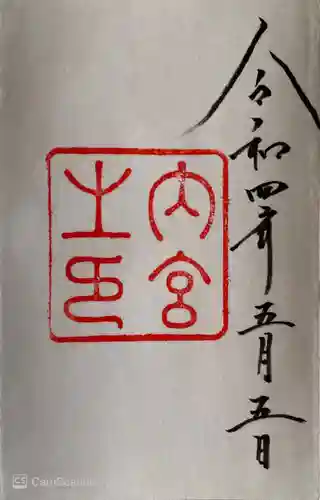 令和四年五月五日
内宮
之印
CS CamScanner